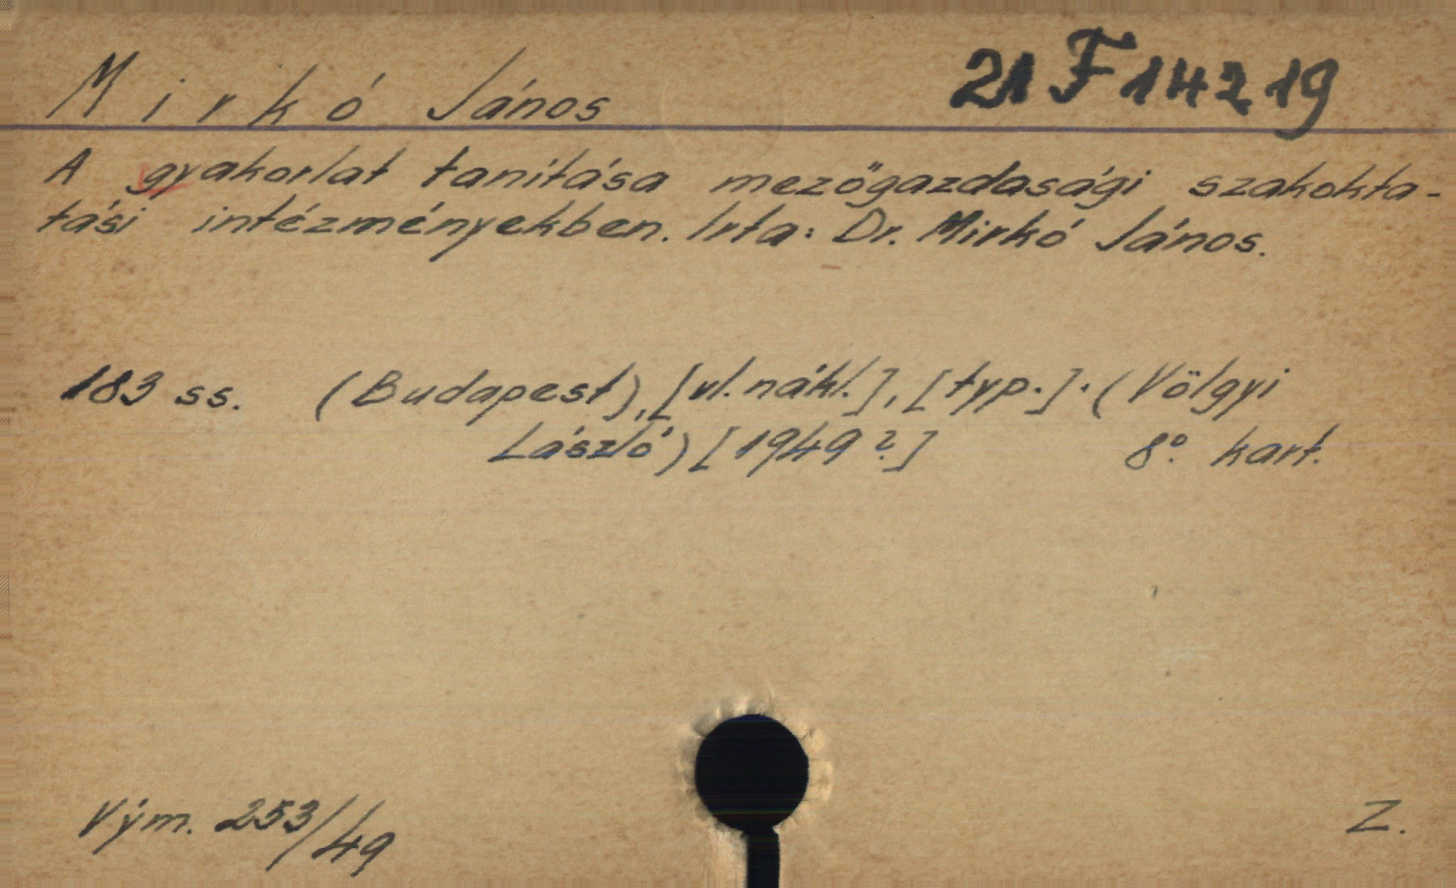 Mirkó János 21 F 14219
A gyakorlat tanítása mezőgazdasági szakokta-
tási intézményekben. Irta: Dr. Mirkó János.
183 ss. (Budapest), [vl. nákl.], [typ.]. (Völgyi
László) [1949?] 8°. kart.
Vým. 253/49 Z.